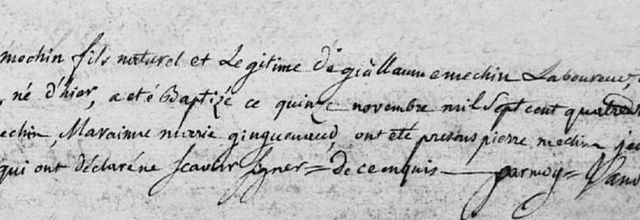 mechin fils naturel et Legitime de guillaume mechin Laboureur,
, né d'hier, a eté Baptizé ce quinze novembre mil Sept cent quatre
echin, Maraine marie ginguenaud, ont eté presens pierre mechin
qui ont déclaré ne Scavoir Signer = de ce enquis — par moy =